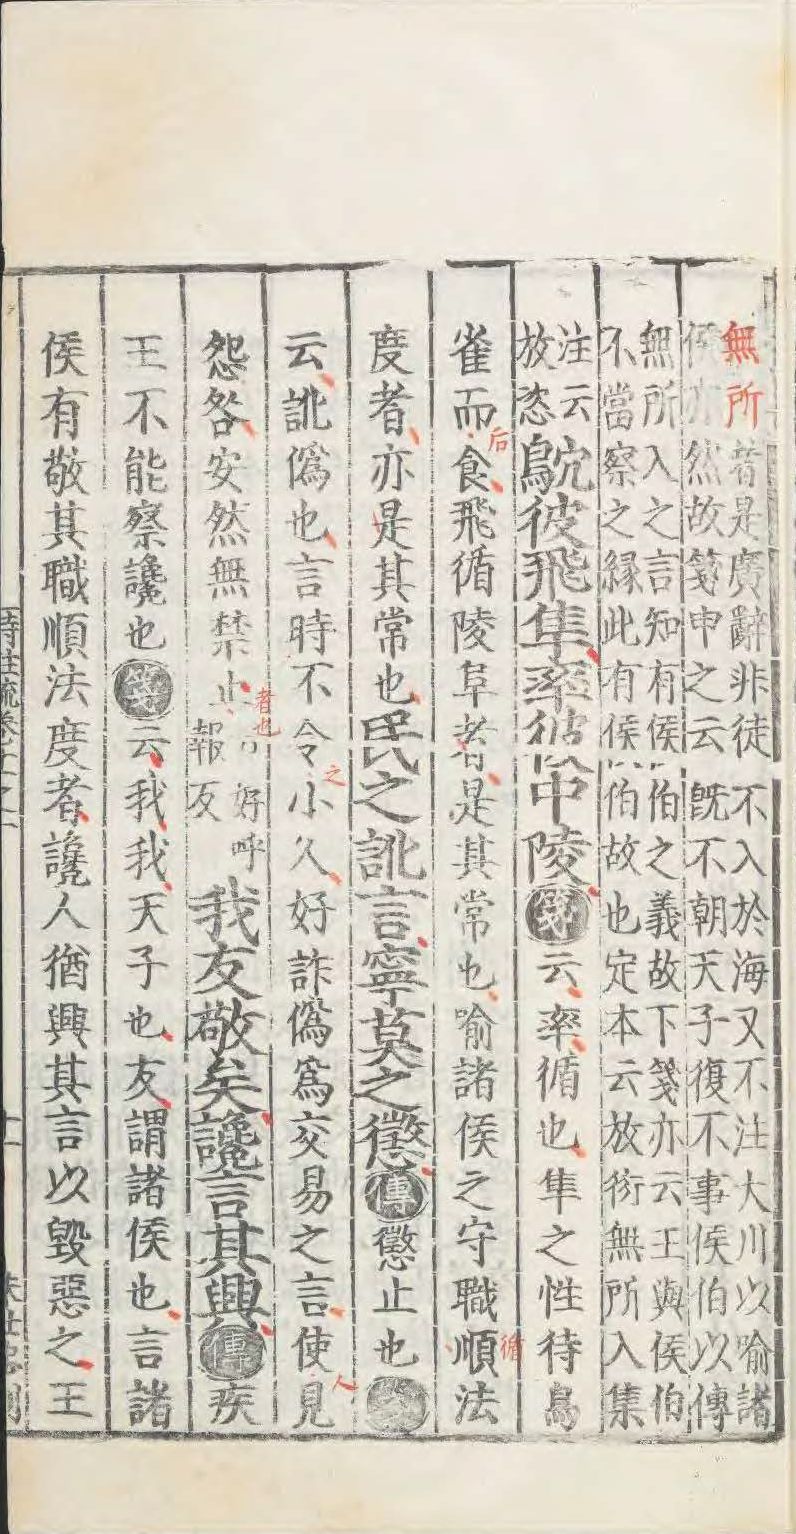 無所者是廣辭非徒不入於海又不注大川以喻諸
侯亦然故箋申之云旣不朝天子復不事侯伯以傳
無所入之言知有侯伯之義故下箋亦云王與侯伯
不當察之縁此有侯伯故也定本云放衍無所入集
注云
放恣
鴥彼飛隼率彼中陵箋云率循也隼之性待鳥
雀而食飛循陵阜者是其常也喻諸侯之守職順法
后
循
度者亦是其常也民之訛言寧莫之懲傳懲止也
云訛僞也言時不令小人好詐僞爲交易之言使見
之
人
怨咎安然無禁止
者也
好呼
報反
我友敬矣讒言其興傳疾
王不能察讒也箋云我我天子也友謂諸侯也言諸
侯有敬其職順法度者讒人猶興其言以毀惡之王